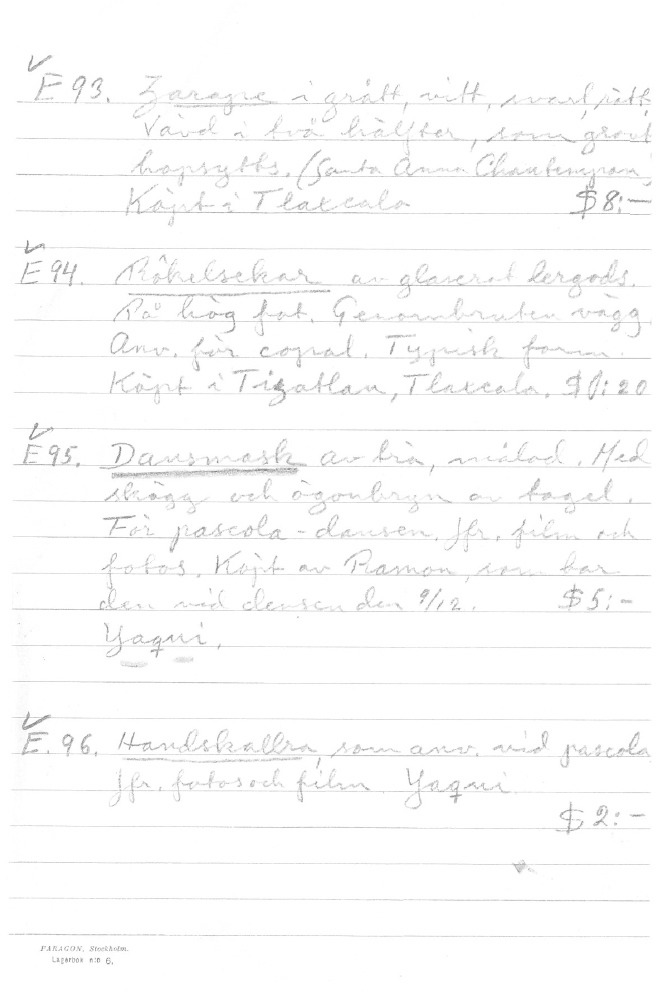 ✓
E 93. Zarape i grått, vitt, svart, rött.
Vävd i två hälfter, som grovt
hopsytts. (Santa Anna Chautempan)
Köpt i Tlaxcala $8:-
✓
E 94. Rökelsekar av glaserat lergods.
På hög fot. Genombruten vägg.
Anv. för copal. Typisk form.
Köpt i Tizatlan, Tlaxcala. $1:20
✓
E 95. Dansmask av trä, målad. Med
skägg och ögonbryn av tagel.
För pascola-dansen. Jfr. film och
fotos. Köpt av Ramon, som bar
den vid dansen den 9/12. $5:-
Yaqui.
✓
E. 96. Handskallra, som anv. vid pascola
Jfr. fotos och film. Yaqui.
$2:-
PARAGON, Stockholm.
Lagerbok n:o 6.